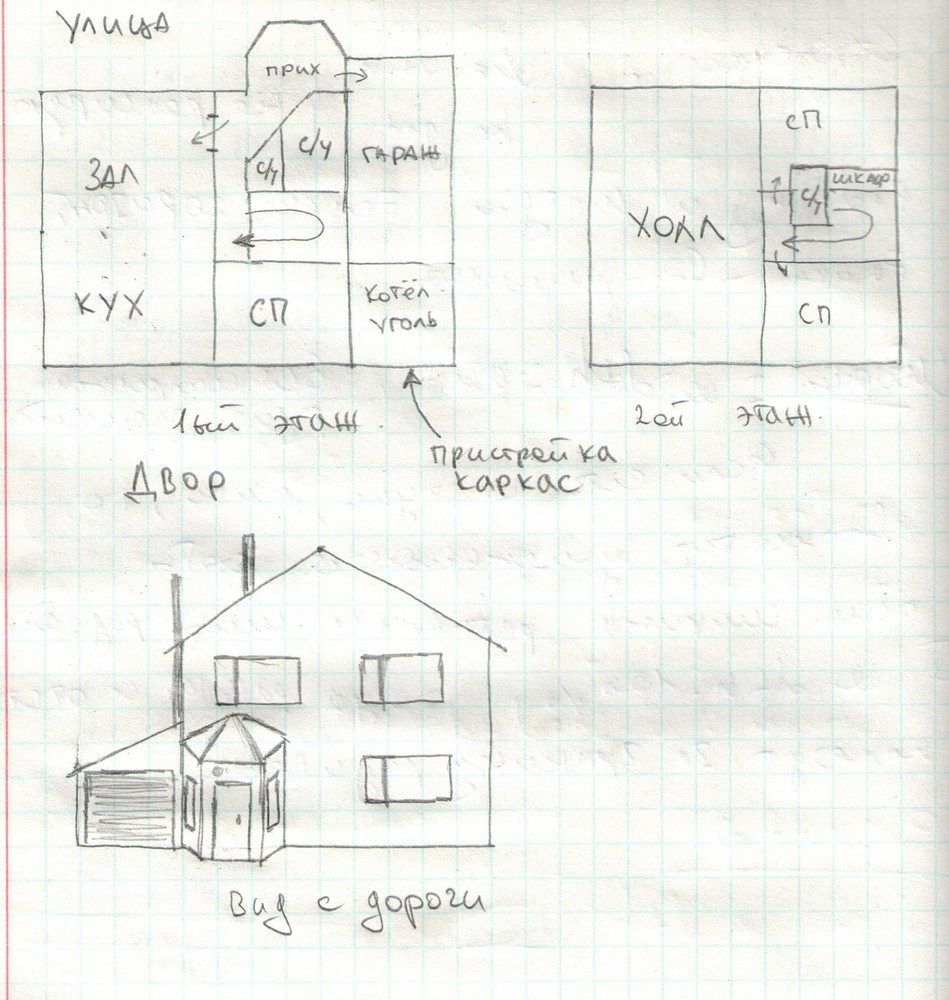 УЛИЦА
прих
ЗАЛ
с/у
с/у
ГАРАЖ
КУХ
СП
Котёл
уголь
1ый этаж.
пристройка
каркас
СП
ХОЛЛ
с/у
шкаф
СП
2ой этаж.
ДВОР
Вид с дороги